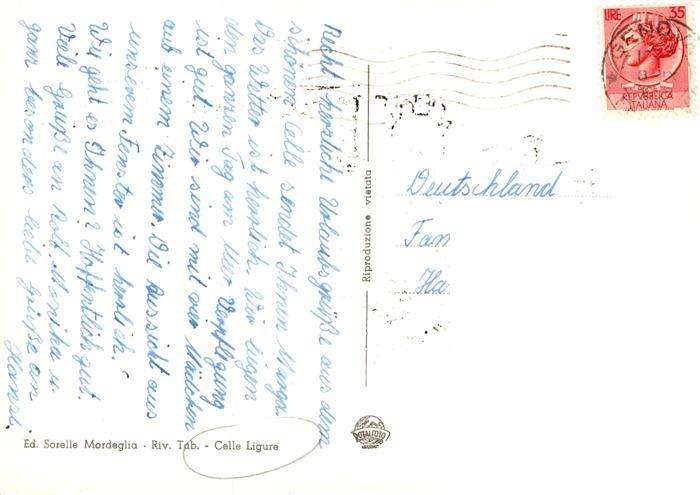 Recht herrliche Urlaubsgrüße aus dem
schönen Celle sendet Ihnen Marga.
Das Wetter ist herrlich. Wir liegen
den ganzen Tag am Meer. Verpflegung
ist gut. Wir sind mit vier Mädchen
auf einem Zimmer. Die Aussicht aus
unserem Fenster ist herrlich.
Wie geht es Ihnen? Hoffentlich gut.
Viele Grüße an Rolf, Monika u.
ganz besonders liebe Grüße an
Hansi.
LIRE 35
POSTE
REPVBBLICA
ITALIANA
Riproduzione vietata
Deutschland
Fam
Ha
Ed. Sorelle Mordeglia - Riv. Tab. - Celle Ligure